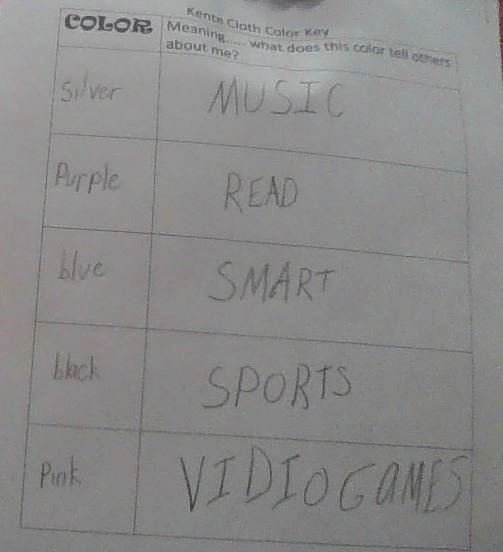 Kente Cloth Color Key
COLOR Meaning..... what does this color tell others
about me?
Silver MUSIC
Purple READ
blue SMART
black SPORTS
Pink VIDIOGAMES